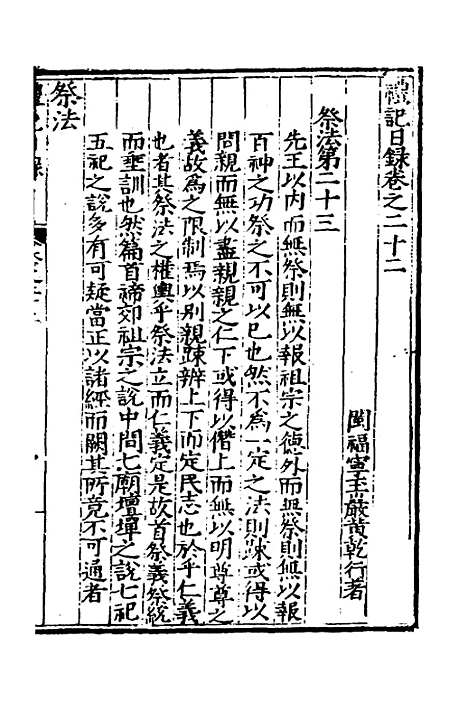 禮記日錄卷之二十二
閩福寧玉巖黃乾行著
祭法第二十三
先王以内而無祭則無以報祖宗之德外而無祭則無以報
百神之功祭之不可以已也然不為一定之法則踈或得以
間親而無以盡親親之仁下或得以僭上而無以明尊尊之
義故為之限制焉以別親踈辨上下而定民志也於乎仁義
也者其祭法之權輿乎祭法立而仁義定是故首祭義祭統
而垂訓也然篇首禘郊祖宗之說中間七廟壇墠之說七祀
五祀之說多有可疑當正以諸經而闕其所竟不可通者
祭法